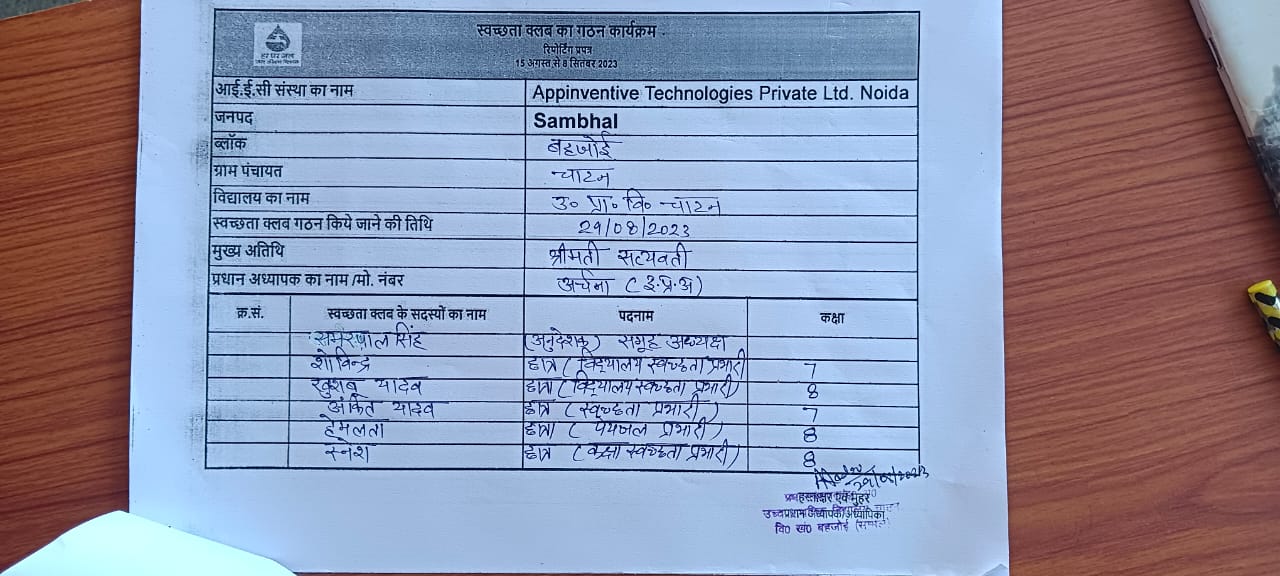 स्वच्छता क्लब का गठन कार्यक्रम
रिपोर्टिंग प्रपत्र
15 अगस्त से 8 सितंबर 2023
हर घर जल
जल जीवन मिशन
आई.ई.सी संस्था का नाम Appinventive Technologies Private Ltd. Noida
जनपद Sambhal
ब्लॉक बहजोई
ग्राम पंचायत चाटन
विद्यालय का नाम उ० प्रा० वि० चाटन
स्वच्छता क्लब गठन किये जाने की तिथि 29/08/2023
मुख्य अतिथि श्रीमती सत्यवती
प्रधान अध्यापक का नाम /मो. नंबर अर्चना (इ.प्र.अ)
क्र.सं. स्वच्छता क्लब के सदस्यों का नाम पदनाम कक्षा
समरपाल सिंह (अनुदेशक) समूह अध्यक्ष
छात्र (विद्यालय स्वच्छता प्रभारी) 7
खुशबू यादव छात्रा (विद्यालय स्वच्छता प्रभारी) 8
अंकित यादव छात्र (स्वच्छता प्रभारी) 7
हेमलता छात्रा (पेयजल प्रभारी) 8
स्नेश छात्र (कक्षा स्वच्छता प्रभारी) 8
29/08/2023
हस्ताक्षर एवं मुहर
वि0 ख0 बहजोई (सम्भल)